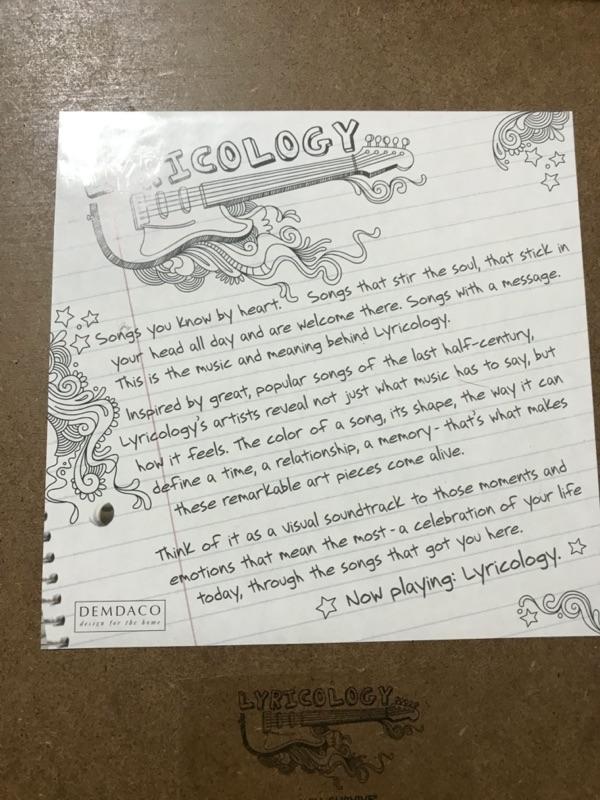 LYRICOLOGY
Songs you know by heart. Songs that stir the soul, that stick in
your head all day and are welcome there. Songs with a message.
This is the music and meaning behind Lyricology.
Inspired by great, popular songs of the last half-century,
Lyricology's artists reveal not just what music has to say, but
how it feels. The color of a song, its shape, the way it can
define a time, a relationship, a memory - that's what makes
these remarkable art pieces come alive.
Think of it as a visual soundtrack to those moments and
emotions that mean the most - a celebration of your life
today, through the songs that got you here.
Now playing: Lyricology.
DEMDACO
design for the home
LYRICOLOGY